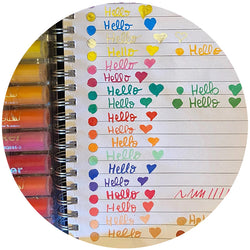 Hello
Hello
Hello
Hello Hello
Hello
Hello
Hello Hello
Hello Hello
Hello
Hello
Hello
Hello
Hello
Hello
Hello
Hello
Hello
Hello Hello